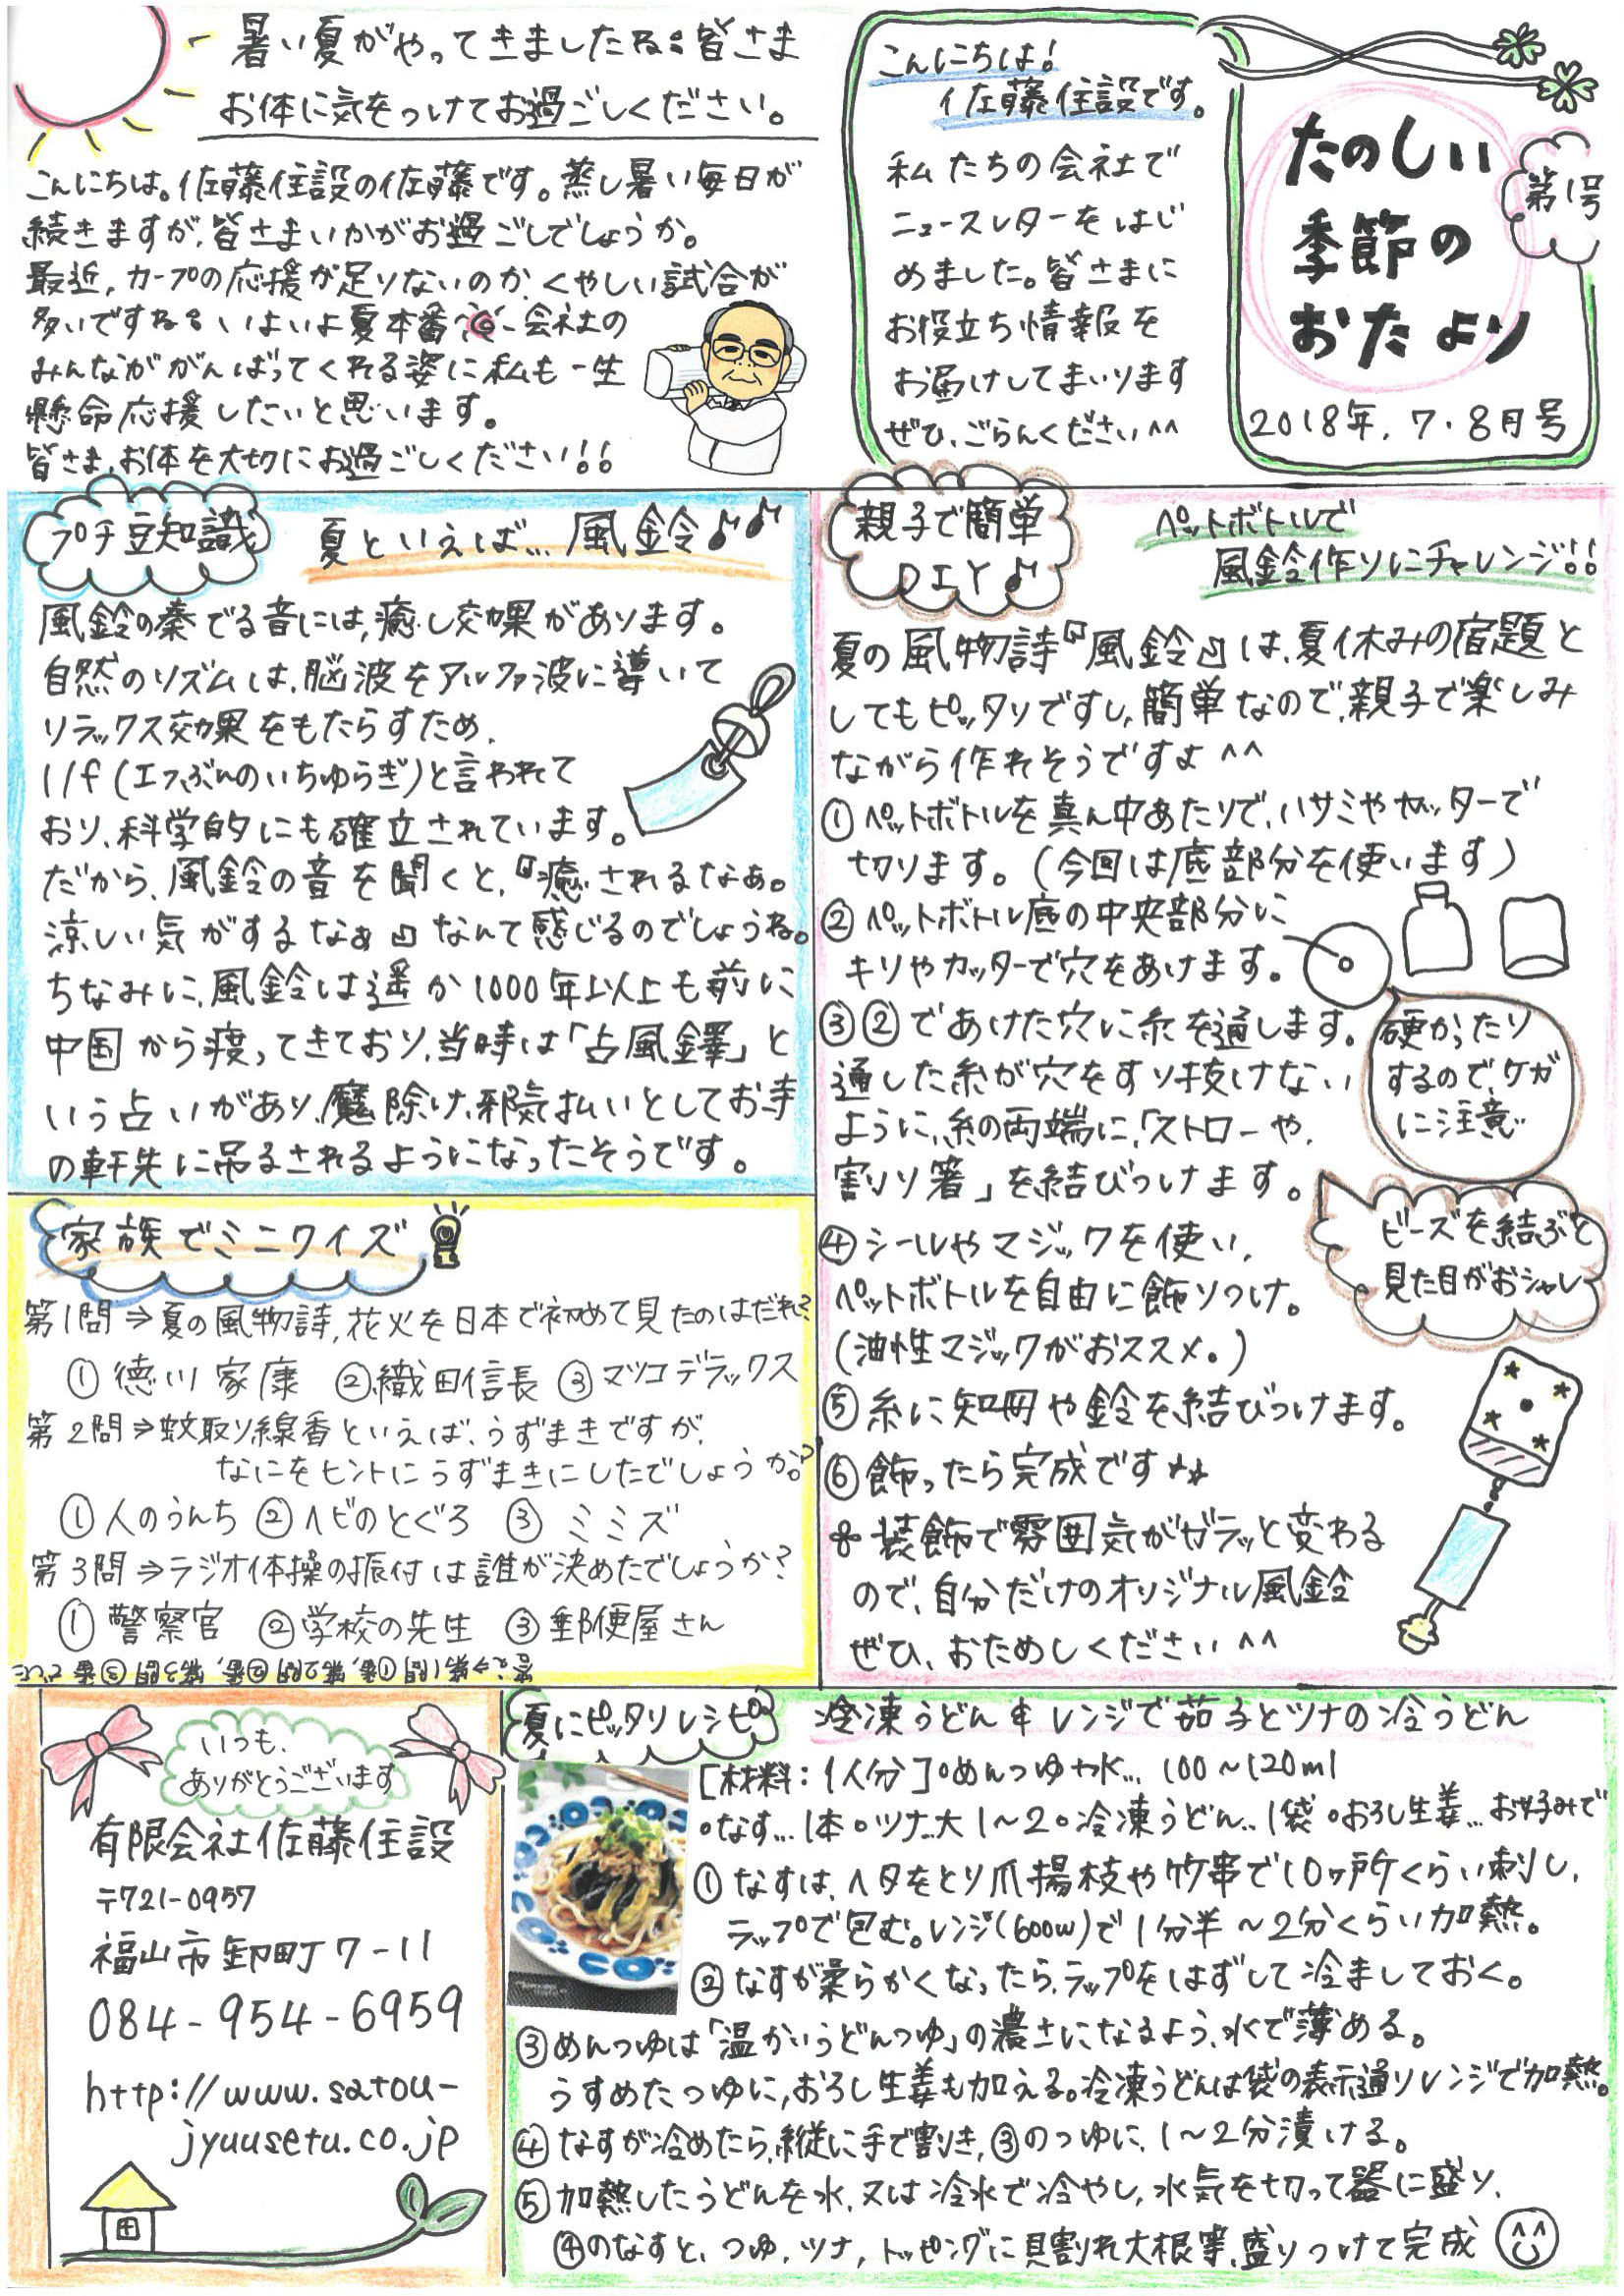 たのしい
季節の
おたより
第1号
2018年.7・8月号
こんにちは!
佐藤住設です。
私たちの会社で
ニュースレターをはじ
めました。皆さまに
お役立ち情報を
お届けしてまいります
ぜひ、ごらんください^^
暑い夏がやってきましたね。皆さま
お体に気をつけてお過ごしください。
こんにちは。佐藤住設の佐藤です。蒸し暑い毎日が
続きますが、皆さまいかがお過ごしでしょうか。
最近、カープの応援が足りないのか、くやしい試合が
多いですね。いよいよ夏本番 会社の
みんながんばってくれる姿に私も一生
懸命応援したいと思います。
皆さま、お体を大切にお過ごしください!!
プチ豆知識
夏といえば...風鈴♪♪
風鈴の奏でる音には、癒し効果があります。
自然のリズムは、脳波をアルファ波に導いて
リラックス効果をもたらすため、
1/f(エフぶんのいちゆらぎ)と言われて
おり、科学的にも確立されています。
だから、風鈴の音を聞くと、『癒されるなぁ。
涼しい気がするなぁ』なんて感じるのでしょうね。
ちなみに、風鈴は遥か1000年以上も前に
中国から渡ってきており、当時は「占風鐸」と
いう占いがあり、魔除け、邪気払いとしてお寺
の軒先に吊るされるようになったそうです。
親子で簡単
DIY♪
ペットボトルで
風鈴作りにチャレンジ!!
夏の風物詩『風鈴』は、夏休みの宿題と
してもピッタリですし、簡単なので、親子で楽しみ
ながら作れそうですよ^^
①ペットボトルを真ん中あたりで、ハサミやカッターで
切ります。(今回は底部分を使います)
②ペットボトル底の中央部分に
キリやカッターで穴をあけます。
硬かったり
するので、ケガ
に注意
③②であけた穴に糸を通します。
通した糸が穴をすり抜けない
ように、糸の両端に、「ストローや、
割り箸」を結びつけます。
ビーズを結ぶと
見た目がおシャレ
④シールやマジックを使い、
ペットボトルを自由に飾りつけ。
(油性マジックがおススメ。)
⑤糸に短冊や鈴を結びつけます。
⑥飾ったら完成です☆☆
装飾で雰囲気がガラッと変わる
ので、自分だけのオリジナル風鈴
ぜひ、おためしください^^
家族でミニクイズ
第1問⇒夏の風物詩、花火を日本で初めて見たのはだれ?
①徳川家康 ②織田信長 ③マツコデラックス
第2問⇒蚊取り線香といえば、うずまきですが、
なにをヒントにうずまきにしたでしょうか?
①人のうんち ②ヘビのとぐろ ③ミミズ
第3問⇒ラジオ体操の振付は誰が決めたでしょうか?
①警察官 ②学校の先生 ③郵便屋さん
答え⇒第1問①番、第2問②番、第3問③番でした
いつも、
ありがとうございます
有限会社佐藤住設
〒721-0957
福山市卸町7-11
084-954-6959
http://www.satou-
jyuusetu.co.jp
夏にピッタリレシピ
冷凍うどん&レンジで茄子とツナの冷うどん
[材料:1人分]○めんつゆ+水... 100~120ml
○なす...1本○ツナ..大1~2○冷凍うどん..1袋○おろし生姜...お好みで
①なすは、ヘタをとり爪揚枝や竹串で10ヶ所くらい刺し、
ラップで包む。レンジ(600w)で1分半~2分くらい加熱。
②なすが柔らかくなったら、ラップをはずして冷ましておく。
③めんつゆは「温かいうどんつゆ」の濃さになるよう、水で薄める。
うすめたつゆに、おろし生姜も加える。冷凍うどんは袋の表示通りレンジで加熱。
④なすが冷めたら、縦に手で割き、③のつゆに、1~2分漬ける。
⑤加熱したうどんを水、又は冷水で冷やし、水気を切って器に盛り、
④のなすと、つゆ、ツナ、トッピングに貝割れ大根等、盛りつけて完成